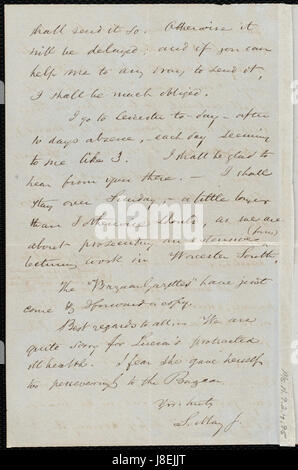 shall send it so. Otherwise it
will be delayed; and if you can
help me to any way to send it,
I shall be much obliged.
I go to Leicester to-day - after
10 days absence, each day seeming
to me like 3. I shall be glad to
hear from you there. - I shall
stay over Sunday, - a little longer
than I otherwise should, as we are
about prosecuting an extensive (for us)
lecturing work in Worcester South.
The "Bazaar Gazettes" have just
come & I forward a copy.
Best regards to all. We are
quite sorry for Lucia's protracted
ill health. I fear she gave herself
too perseveringly to the Bazaar.
Yrs. truly
S. May Jr.
Ms.
a alamy stock photo
E8EJJT